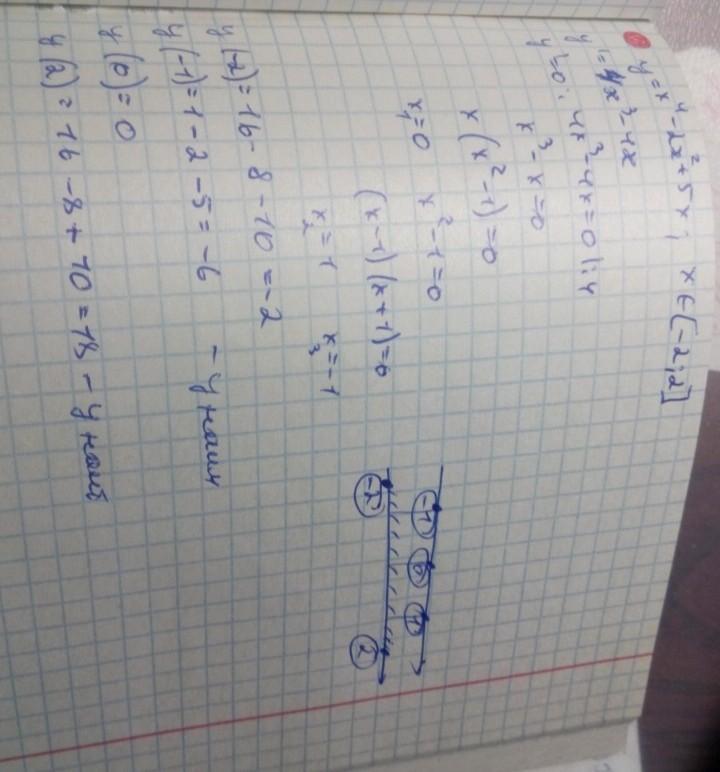 y = x⁴ - 2x² + 5x; x ∈ (-2;2]
y' = 4x³ - 4x
y' = 0: 4x³ - 4x = 0 |:4
x³ - x = 0
x (x² - 1) = 0
x₁ = 0 x² - 1 = 0
(x-1) (x+1) = 0
x₂ = 1 x₃ = -1
-1 0 1
-2 2
y(-2) = 16 - 8 - 10 = -2
y(-1) = 1 - 2 - 5 = -6 - y наим
y(0) = 0
y(2) = 16 - 8 + 10 = 18 - y наиб